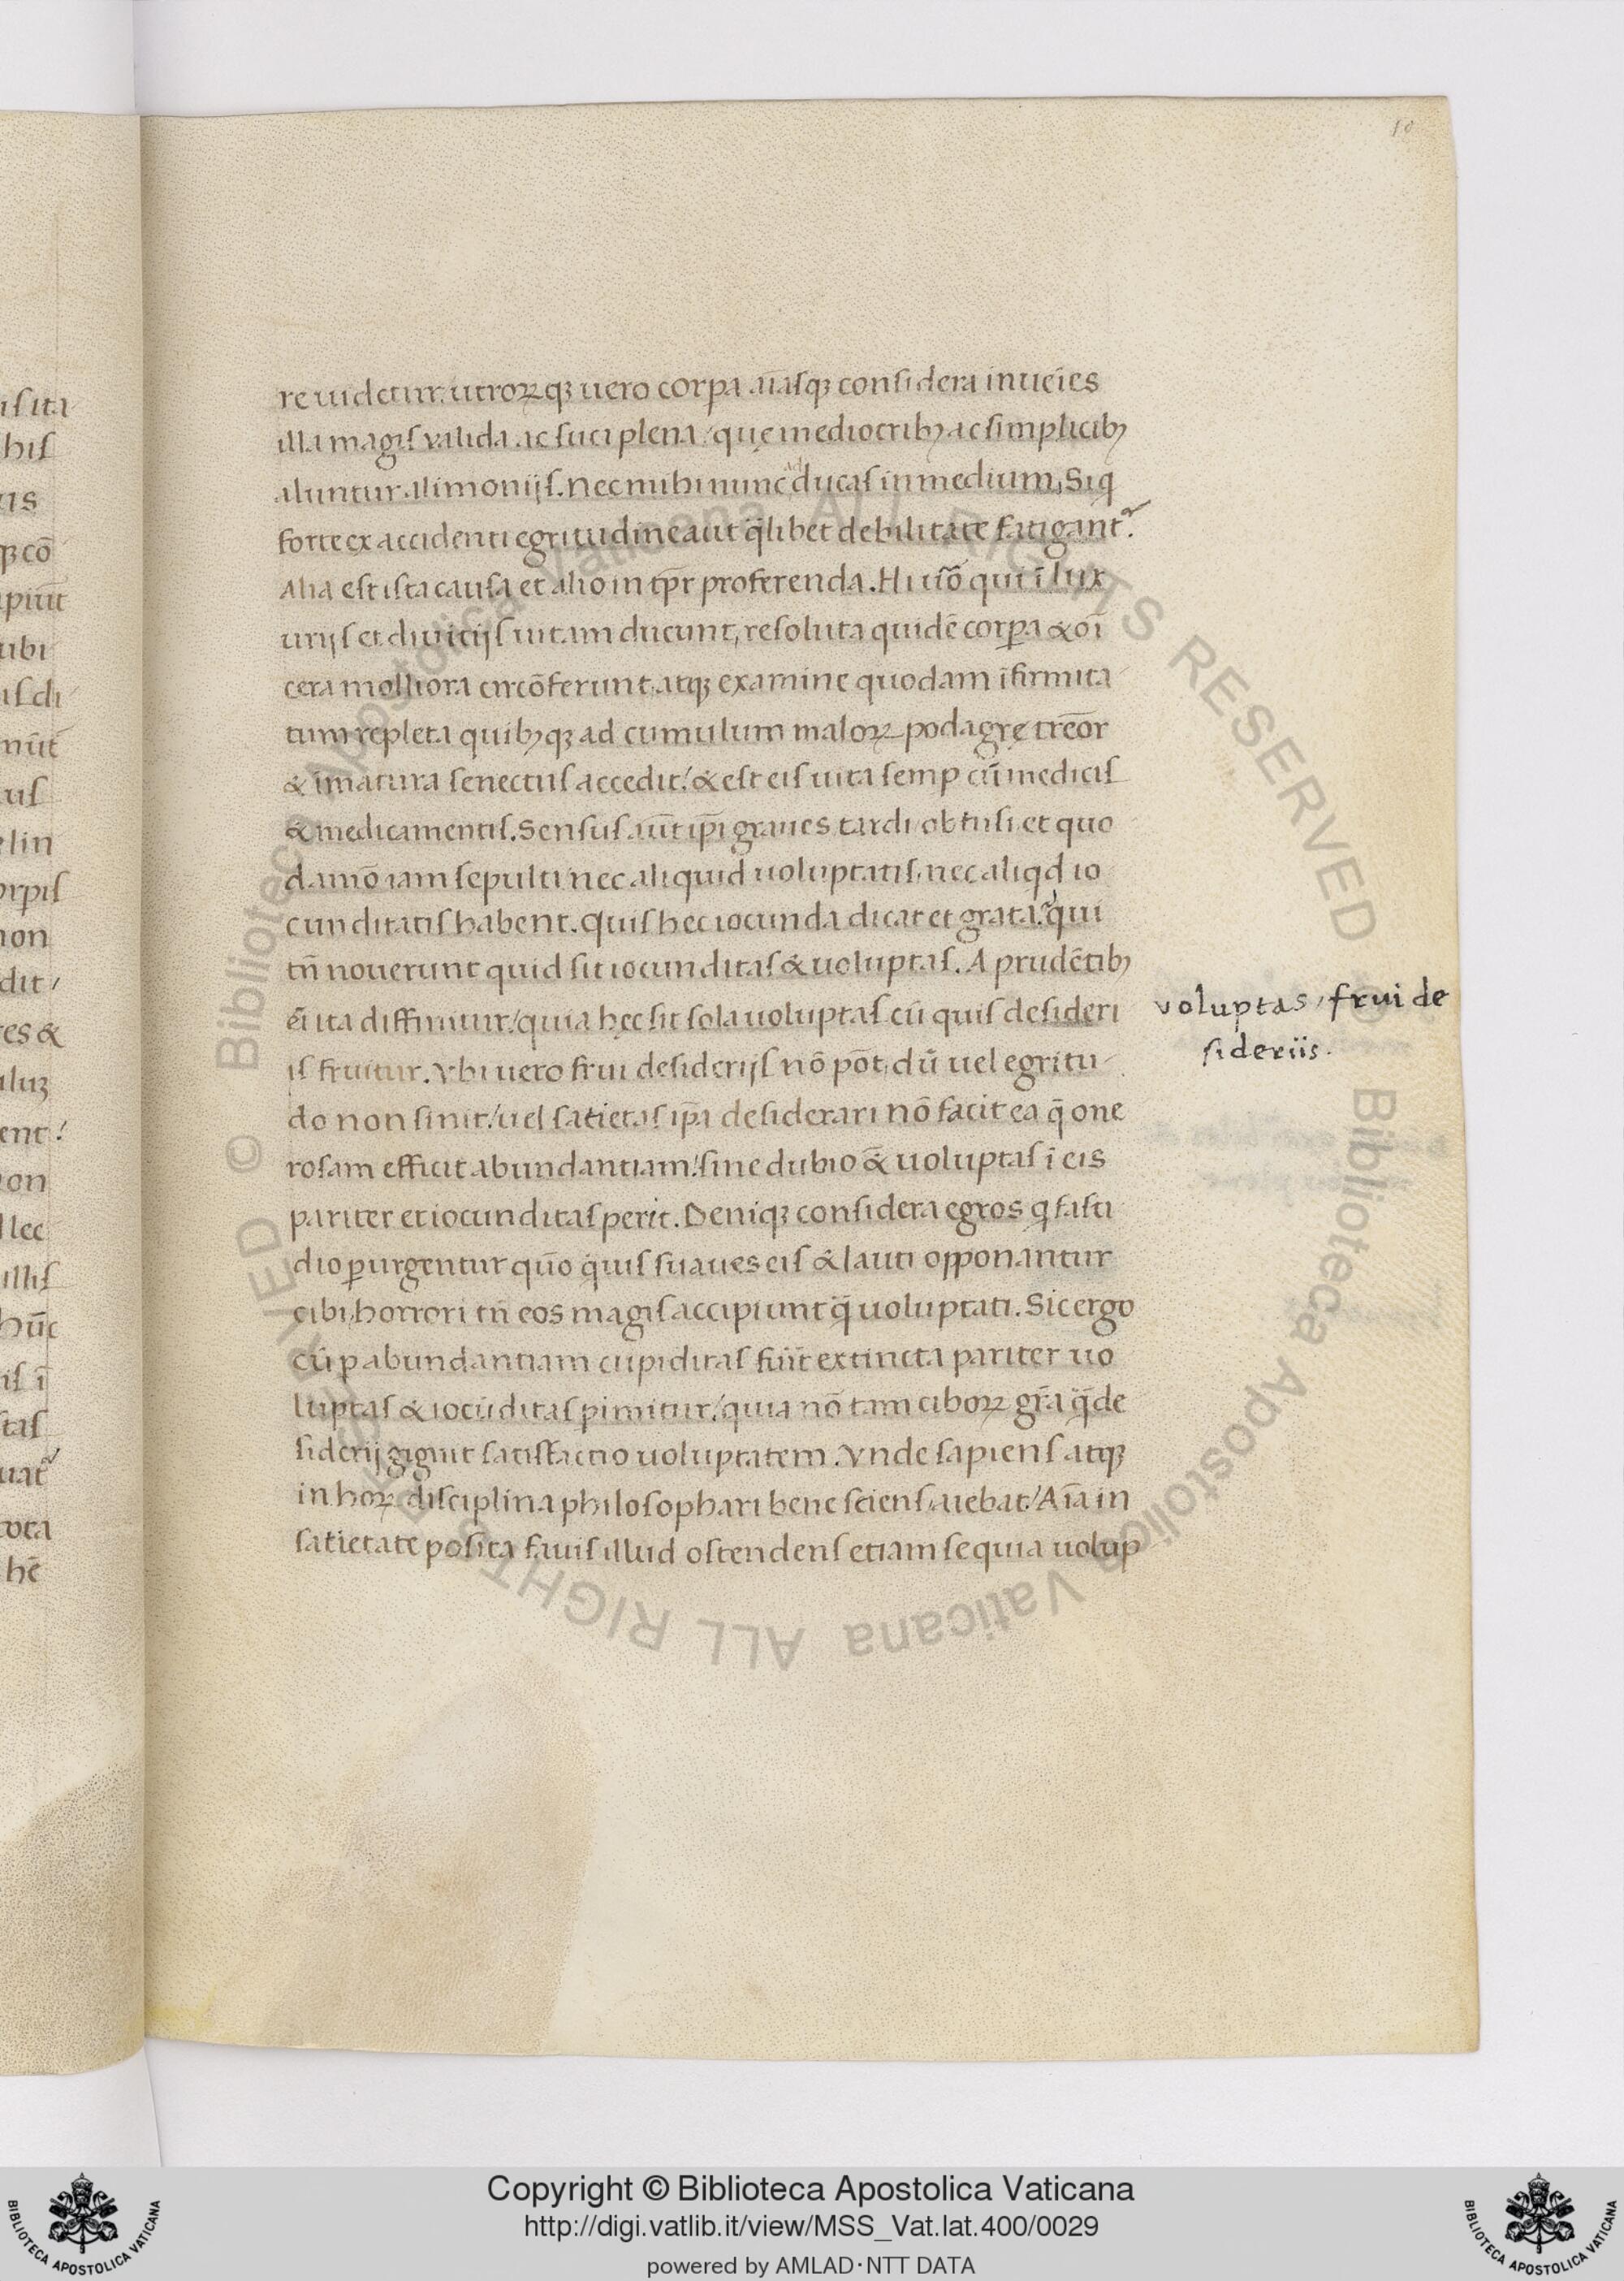 10
re uidetur. utroꝝqꝫ uero corꝑa aiāsqꝫ considera inueīes
illa magis valida ac suci plena / quę mediocribꝫ ac simplicibꝫ
aluntur alimonijs. Nec mihi nunc ad ducas in medium, Si q
forte ex accidenti egritudine aut q̄libet debilitate fatigant᷑.
Alia est ista causa et alio in tp̄r proferenda. Hi uō qui ī lux
urijs et diuicijs uitam ducunt, resoluta quidē corꝑa & oī
cera molliora circōferunt, atqꝫ examine quodam īfirmita
tum repleta quibꝫqꝫ ad cumulum maloꝝ podagrę treōr
& īmatura senectus accedit! & est eis uita semꝑ cū medicis
& medicamentis. Sensus aūt ip̄i graues tardi obtusi et quo
damō iam sepulti nec aliquid uoluptatis, nec aliqd io
cunditatis habent. Quis hec iocunda dicat et grata? qui
tn̄ nouerunt quid sit iocunditas & uoluptas. A prudētibꝫ
eī ita diffinitur! quia hęc sit sola uoluptas cū quis desideri
is fruitur. Vbi uero frui desiderijs nō pōt, dū uel egritu
do non sinit! uel satietas ip̄a desiderari nō facit ea q̄ one
rosam efficit abundantiam! sine dubio & uoluptas ī eis
pariter et iocunditas perit. Deniqꝫ considera egros q fasti
dio ꝑurgentur quō quis suaues eis & lauti opponantur
cibi, horrori tn̄ eos magis accipiunt q̄ uoluptati. Sic ergo
cū ꝑ abundantiam cupiditas fuīt extincta pariter uo
luptas & iocūditas ꝑimitur! quia nō tam ciboꝝ gr̄a q̄ de
siderij gignit satisfactio uoluptatem. Vnde sapiens atqꝫ
in hoꝝ disciplina philosophari bene sciens, aiebat! Aīa in
satietate posita fauis illud ostendens etiam se quia uolup
voluptas, frui de
sideriis.
Copyright © Biblioteca Apostolica Vaticana
http://digi.vatlib.it/view/MSS_Vat.lat.400/0029
powered by AMLAD·NTT DATA